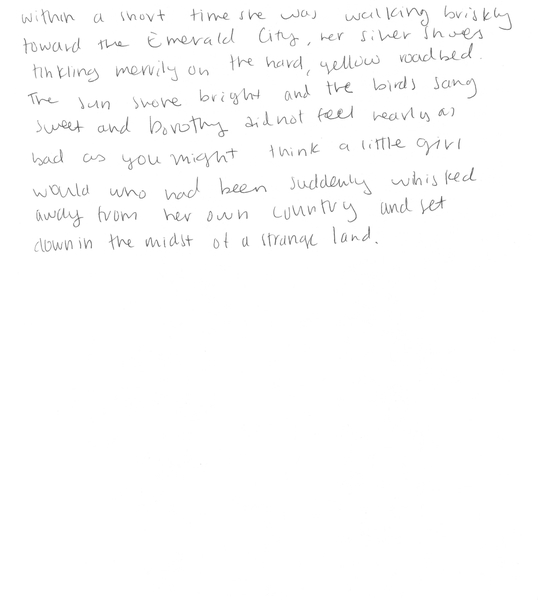 within a short time she was walking briskly
toward the Emerald City, her silver shoes
tinkling merrily on the hard, yellow roadbed.
The sun shone bright and the birds sang
sweet and Dorothy did not feel nearly as
bad as you might think a little girl
would who had been suddenly whisked
away from her own country and set
down in the midst of a strange land.